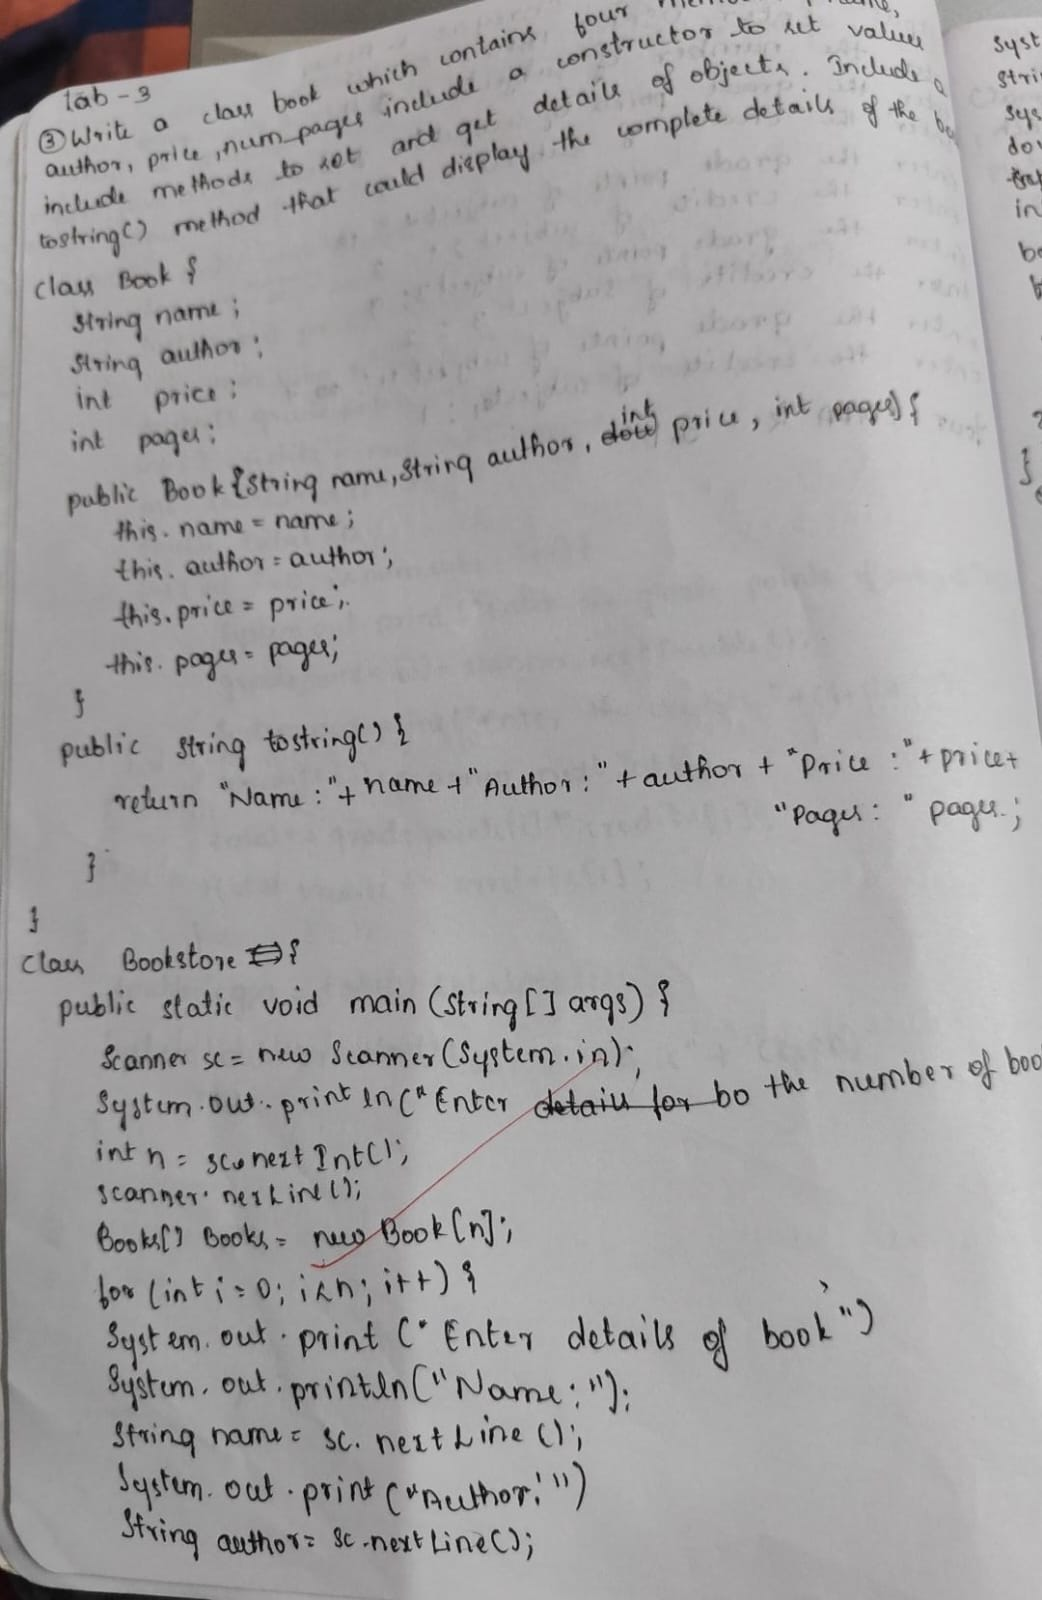 lab - 3
③ Write a class book which contains four
author, price, num_pages include a constructor to set values
include methods to set and get details of objects. Include a
tostring() method that could display the complete details of the bo
class Book {
String name ;
String author ;
int price ;
int pages ;
public Book {String name, String author, int price, int pages) {
this. name = name ;
this. author = author ;
this. price = price ;
this. pages = pages;
}
public String tostring() {
return "Name : "+ name + " Author : " + author + "Price : " + price +
"Pages : " pages. ;
}
}
class Bookstore {
public static void main (String [] args) {
Scanner sc = new Scanner (System . in) ;
System . out . print ln (" Enter details for bo the number of boo
int n = sc. next Int () ;
scanner. nexLine () ;
Books[] Books = new Book [n] ;
for (int i = 0; i < n; i++) {
System. out . print (" Enter details of book")
System. out . println ("Name : ");
String name = sc. next Line () ;
System. out . print ("Author: ")
String author = sc .next Line () ;
syst
stri
sys
do
in
be
b
}